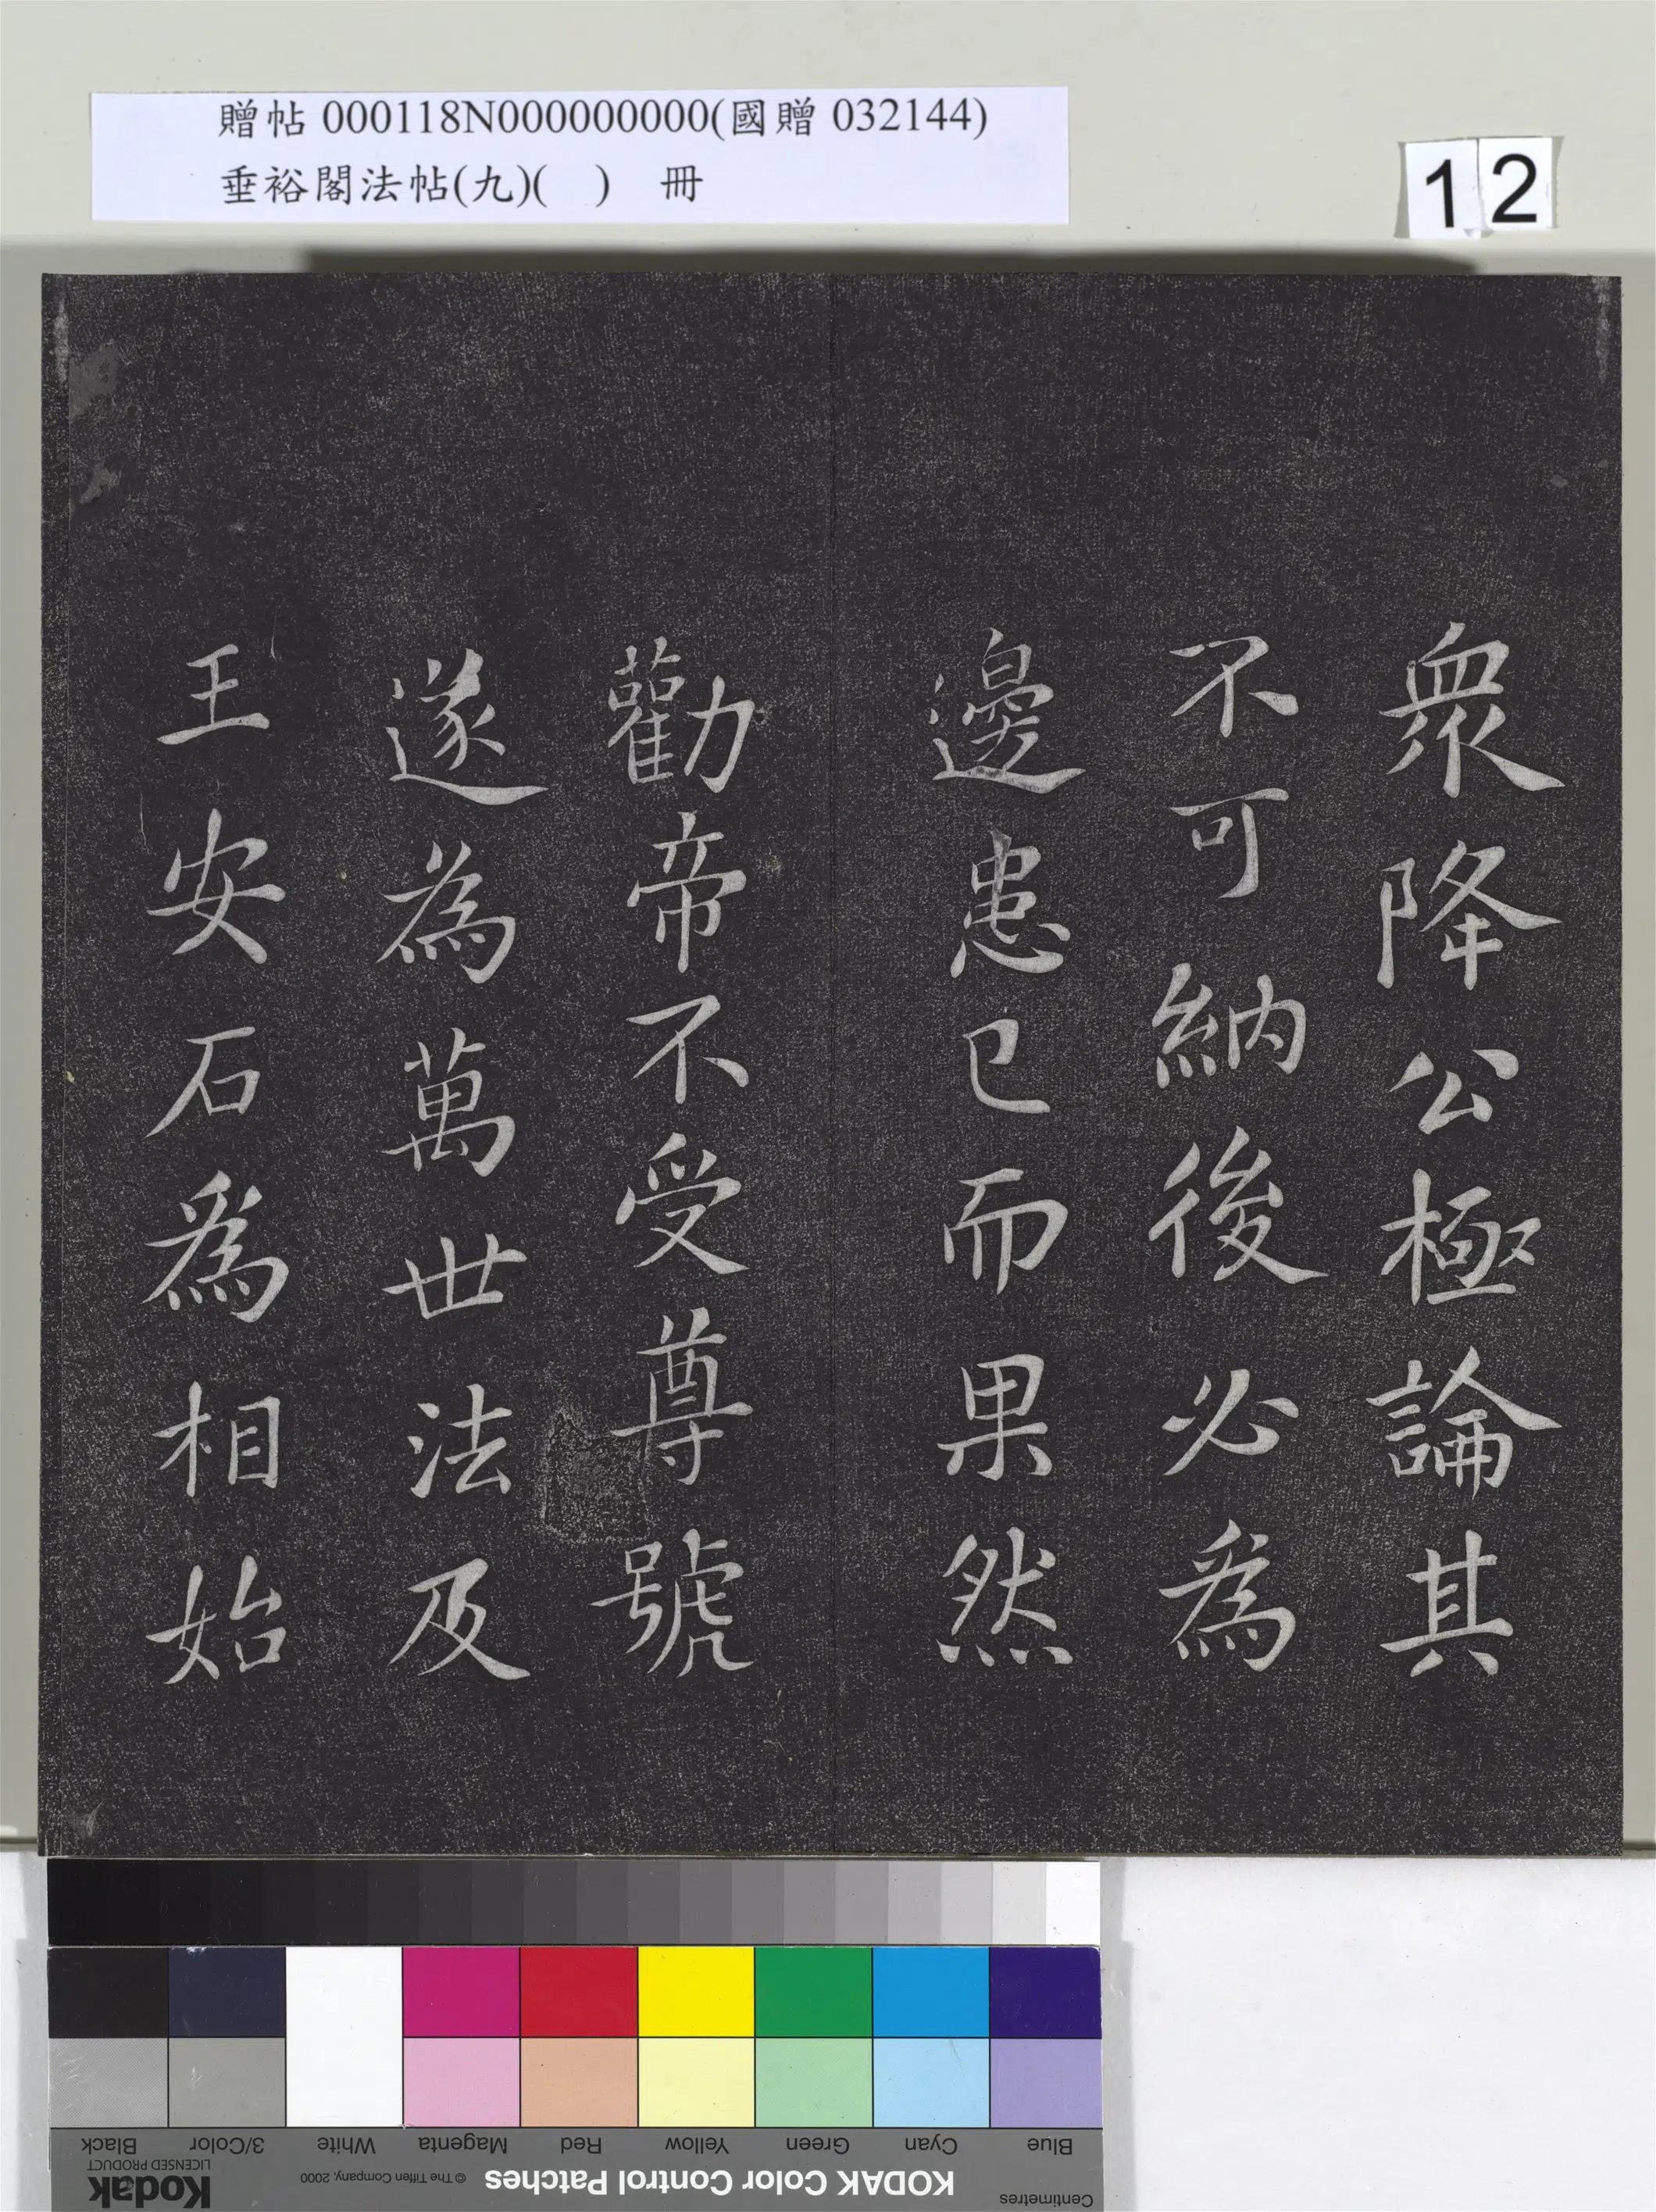 贈帖 000118N000000000(國贈 032144)
垂裕閣法帖(九)( ) 冊
12
衆降公極論其
不可納後必為
邊患已而果然
勸帝不受尊號
遂為萬世法及
王安石為相始
Blue
Cyan
Green
Yellow
Red
Magenta
White
3/Color
Black
Centimetres
KODAK Color Control Patches
© The Tiffen Company, 2000
Kodak
LICENSED PRODUCT